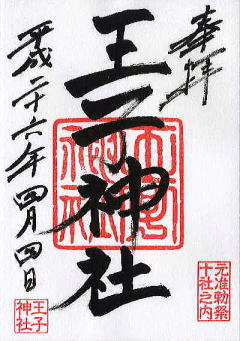 奉拝
元准勅祭
十社之内
王子神社
平成二十六年四月四日
王子
神社